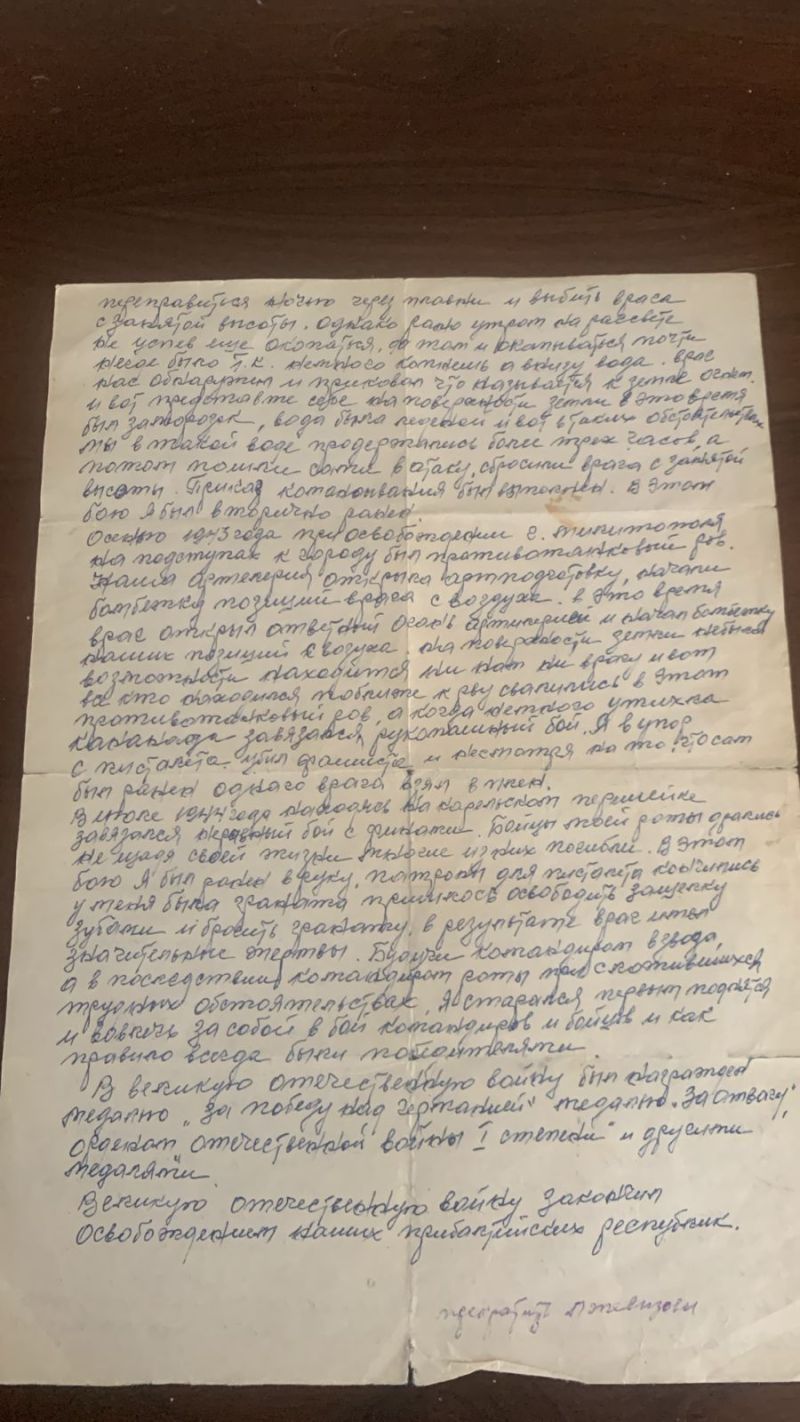 переправиться ночью через плавни и выбить врага
с занятой высоты. Однако рано утром на рассвете
не успев еще окопаться, да там и окапываться почти
негде было т.к. немного копнешь а внизу вода. Враг
нас обнаружил и приковал что называется к земле огнем.
и вот представте себе на поверхности земли в это время
был заморозок, вода была ледяной и вот в таких обстоятельствах
мы в такой воде продержались более трех часов, а
потом пошли сами в атаку, сбросили врага с занятой
высоты. Приказ командования был выполнен. В этом
бою я был вторично ранен.
Осенью 1943 года при освобождении г. Мелитополя
на подступах к городу был противотанковый ров.
Наша артелерия открыла артподготовку, начали
бомбежку позиций врага с воздуха. в это время
враг открыл ответный огонь артилерией и начал бомбежку
наших позиций с воздуха. на поверхности земли не было
возможности находится ни нам ни врагу и вот
все кто находился поближе к рву свалились в этот
противотанковый ров, а когда немного утихла
канонада завязался рукопашный бой. Я в упор
с пистолета убил фашиста и несмотря на то что сам
был ранен одного врага взял в плен.
В июле 1944 года находясь на карельском перешейке
завязался неравный бой с финами. Бойцы моей роты дрались
не щадя своей жизни многие из них погибли. В этом
бою я был ранен в руку, патроны для пистолета кончились
у меня была граната пришлось освободить защелку
зубами и бросить гранату. в результате враг имел
значительные жертвы. Будучи командиром взвода,
а в последствии командиром роты при сложившихся
трудных обстоятельствах, я старался первым поднятся
и вовлечь за собой в бой командиров и бойцов и как
правило всегда были победителями
В великую отечественную войну был награжден
медалью „За победу над германией" медалью „За отвагу",
орденом отечественной войны I степени" и другими
медалями.
Великую отечественную войну закончил
освобождением наших прибалтийских республик.